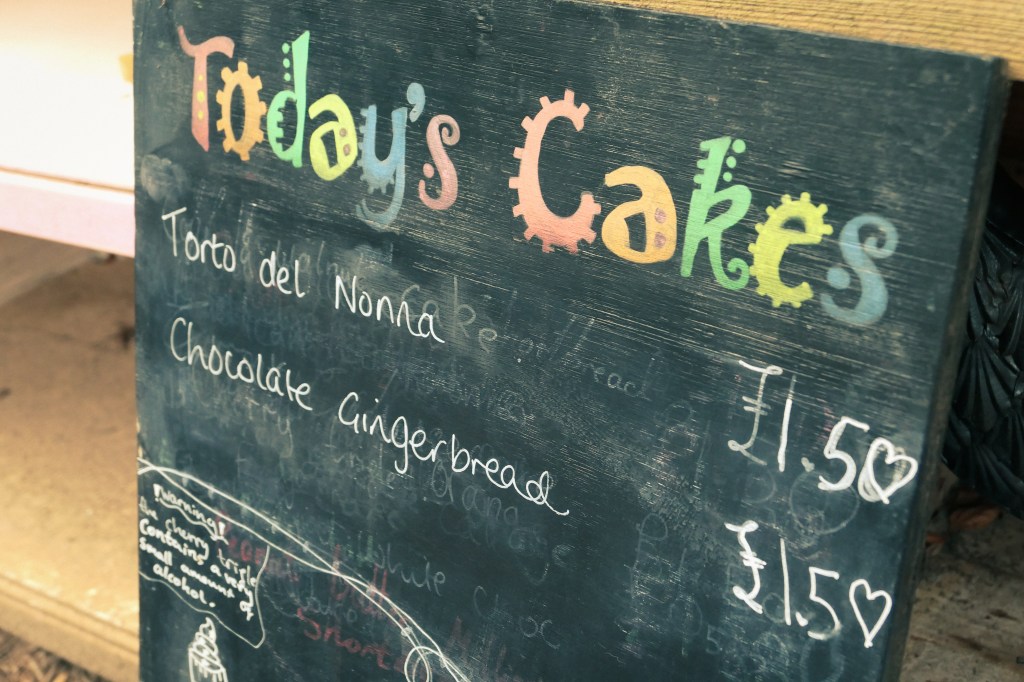 Today's Cakes
Torto del Nonna £1.50
Chocolate Gingerbread £1.50
!warning!
the cherry trifle
contains a very
small amount of
alcohol.
white choc